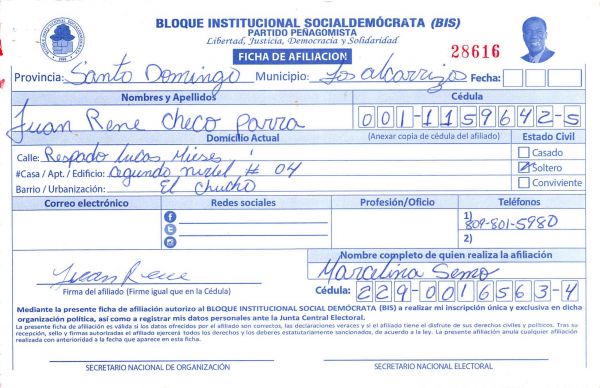 BLOQUE INSTITUCIONAL SOCIALDEMÓCRATA (BIS)
PARTIDO PEÑAGOMISTA
Libertad, Justicia, Democracia y Solidaridad
FICHA DE AFILIACION
28616
Provincia: Santo Domingo Municipio: Los alcarrizo Fecha:
Nombres y Apellidos Cédula
Juan Rene Checo Parra 001-1159642-5
Domicilio Actual (Anexar copia de cédula del afiliado) Estado Civil
Calle: Respado Lucas Mieses Casado
#Casa / Apt. / Edificio: segundo nivel # 04 Soltero
Barrio / Urbanización: El Chucho Conviviente
Correo electrónico Redes sociales Profesión/Oficio Teléfonos
1) 809-801-5980
2)
Nombre completo de quien realiza la afiliación
Juan Rene Marcelina Semo
Firma del afiliado (Firme igual que en la Cédula) Cédula: 229-0016563-4
Mediante la presente ficha de afiliación autorizo al BLOQUE INSTITUCIONAL SOCIAL DEMÓCRATA (BIS) a realizar mi inscripción única y exclusiva en dicha
organización política, así como a registrar mis datos personales ante la Junta Central Electoral.
La presente ficha de afiliación es válida si los datos ofrecidos por el afiliado son correctos, las declaraciones veraces y si el afiliado tiene el disfrute de sus derechos civiles y políticos. Tras su
recepción, sello y firmas autorizadas el afiliado ejercerá todos los derechos y los deberes estatutariamente sancionados, de acuerdo a la ley. La presente afiliación anula cualquier afiliación
realizada con anterioridad a la fecha que aparece en esta ficha.
SECRETARIO NACIONAL DE ORGANIZACIÓN SECRETARIO NACIONAL ELECTORAL